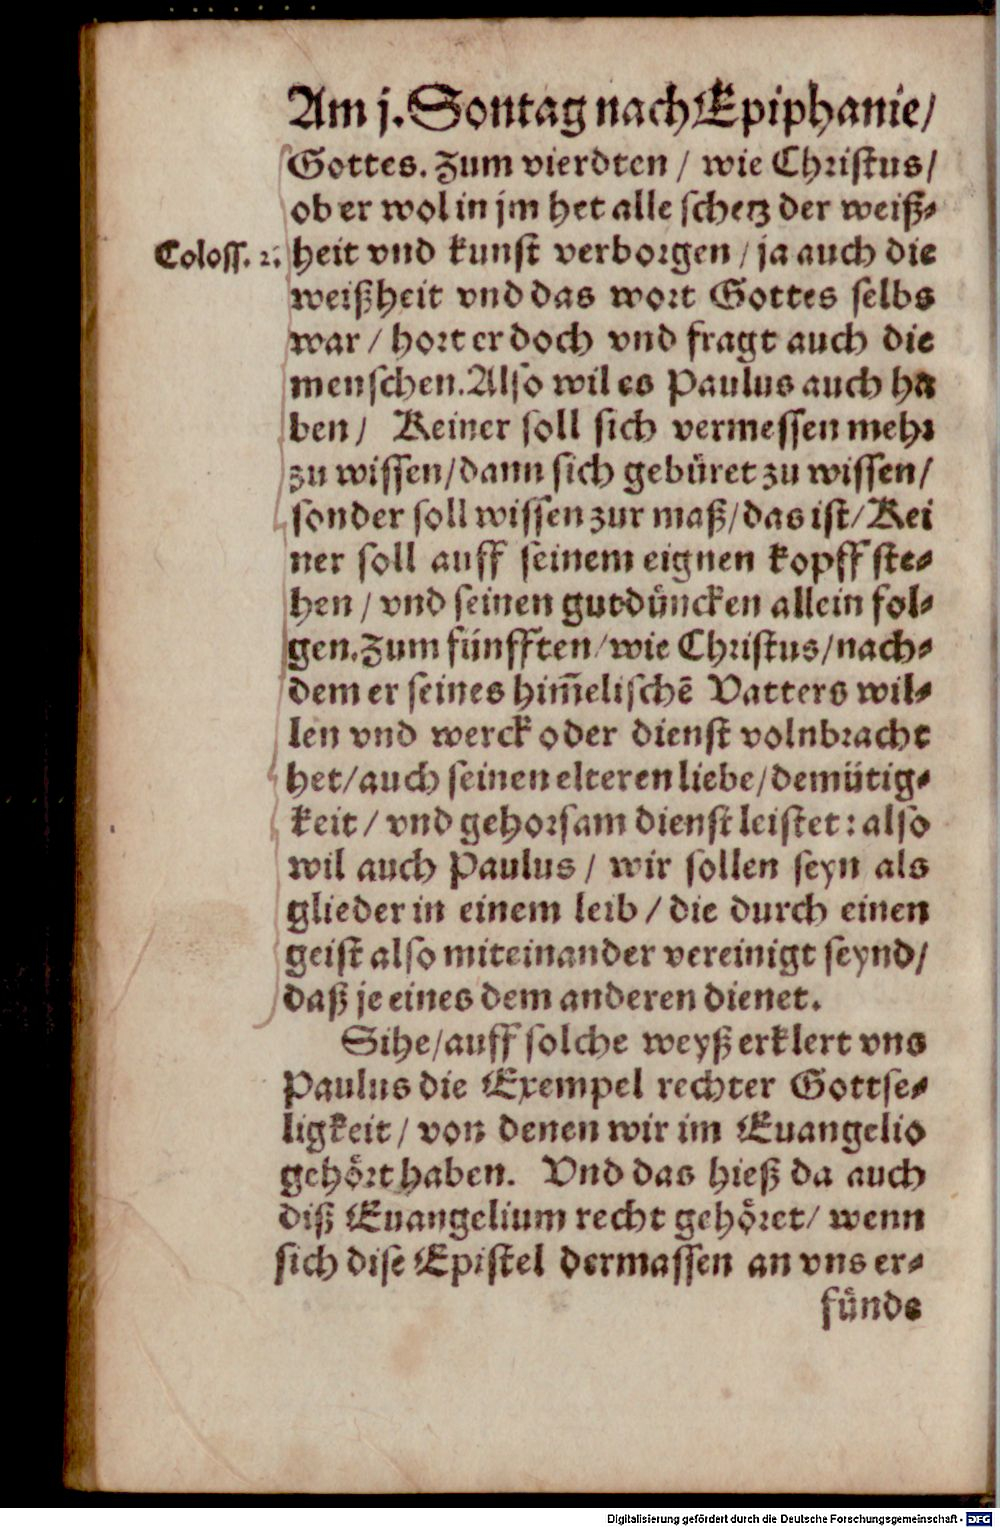 Am j. Sontag nach Epiphanie/
Gottes. Zum vierdten / wie Christus/
ob er wol in jm het alle schetz der weiß-
Coloss. 2. heit vnd kunst verborgen / ja auch die
weißheit vnd das wort Gottes selbs
war / hort er doch vnd fragt auch die
menschen. Also wil es Paulus auch ha
ben / Keiner soll sich vermessen mehr
zu wissen/dann sich gebüret zu wissen/
sonder soll wissen zur maß/das ist/Kei
ner soll auff seinem eignen kopff ste-
hen / vnd seinen gutdüncken allein fol-
gen. Zum fünfften/wie Christus/nach-
dem er seines him̃elischẽ Vatters wil-
len vnd werck oder dienst volnbracht
het/auch seinen elteren liebe/demütig-
keit / vnd gehorsam dienst leistet: also
wil auch Paulus / wir sollen seyn als
glieder in einem leib / die durch einen
geist also miteinander vereinigt seynd/
daß je eines dem anderen dienet.
Sihe/auff solche weyß erklert vns
Paulus die Exempel rechter Gottse-
ligkeit / von denen wir im Euangelio
gehört haben. Vnd das hieß da auch
diß Euangelium recht gehöret/ wenn
sich dise Epistel dermassen an vns er-
fünde
Digitalisierung gefördert durch die Deutsche Forschungsgemeinschaft - DFG